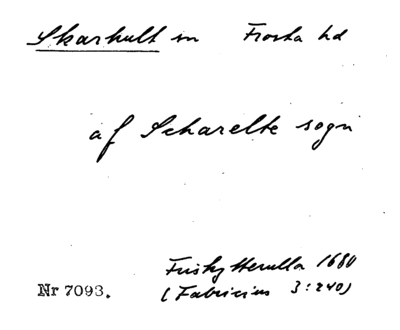 Skarhult sn Frosta hd
af Scharelte sogn
Friskytterulla 1680
Nr 7093. (Fabricius 3:240)